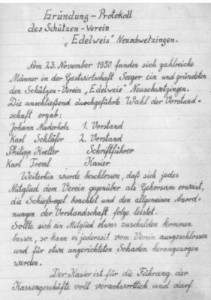 Gründung-Protokoll
des Schützen-Verein
"Edelweis"
Am 23. November 1930 fanden sich zahlreiche
Männer in der Gastwirtschaft Seeger ein und gründeten
den Schützen-Verein "Edelweis"
Die anschließend durchgeführte Wahl der Vorstand-
schaft ergab:
Johann 1. Vorstand
Karl Schläfer 2. Vorstand
Philipp Schriftführer
Karl Kassier
Weiterhin wurde beschlossen, daß sich jedes
Mitglied dem Verein gegenüber als gehorsam erweist,
die Schießregel beachtet und den allgemeinen Anord-
nungen der Vorstandschaft folge leistet.
Sollte sich ein Mitglied etwas zuschulden kommen
lassen, so kann es jederzeit vom Verein ausgeschlossen
und für etwa angerichteten Schaden herangezogen
werden.
Der Kassier ist für die Führung der
Kassengeschäfte voll verantwortlich und darf